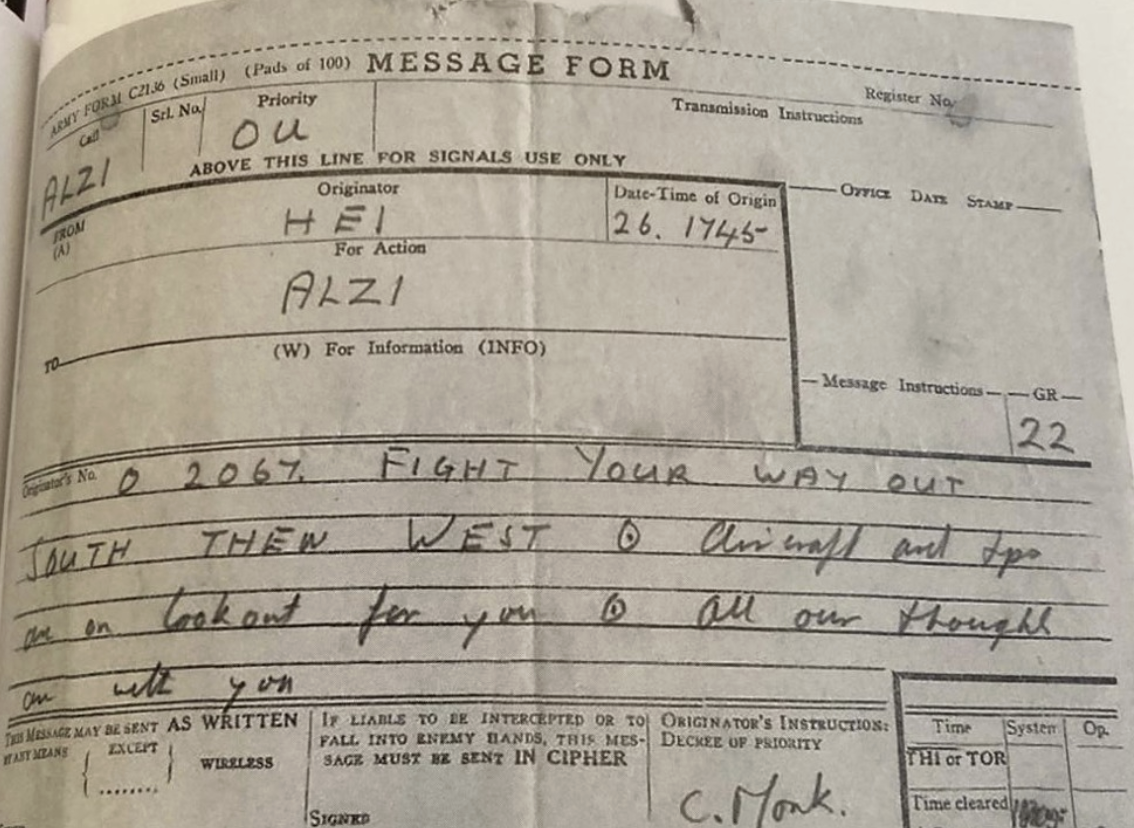 ARMY FORM C2136 (Small) (Pads of 100) MESSAGE FORM
Register No.
Call
Srl. No.
Priority
Transmission Instructions
ALZI
OU
ABOVE THIS LINE FOR SIGNALS USE ONLY
FROM
(A)
Originator
Date-Time of Origin
OFFICE DATE STAMP
HEI
26. 1745
For Action
ALZI
TO
(W) For Information (INFO)
Message Instructions
GR
22
Originator's No. O 2067. FIGHT YOUR WAY OUT
SOUTH THEN WEST ⊙ Aircraft and tps
are on lookout for you ⊙ All our thoughts
are with you
THIS MESSAGE MAY BE SENT AS WRITTEN
BY ANY MEANS
EXCEPT
WIRELESS
IF LIABLE TO BE INTERCEPTED OR TO
FALL INTO ENEMY HANDS, THIS MES-
SAGE MUST BE SENT IN CIPHER
SIGNED
ORIGINATOR'S INSTRUCTION:
DECREE OF PRIORITY
C. Monk.
Time System Op.
THI or TOR
Time cleared